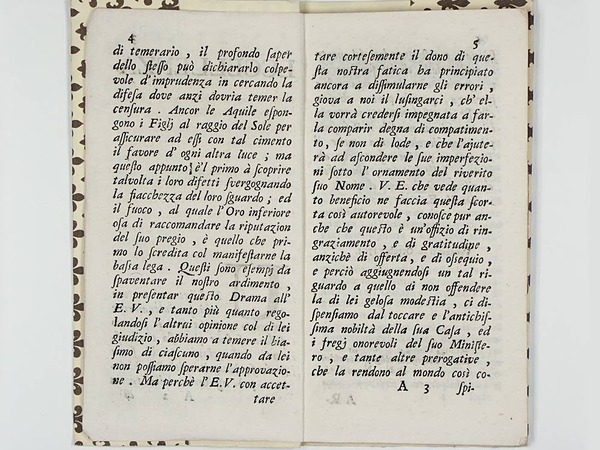 4
di temerario, il profondo ſaper
dello ſteſſo può dichiararlo colpe-
vole d'imprudenza in cercando la
difeſa dove anzi dovria temer la
cenſura. Ancor le Aquile eſpon-
gono i Figlj al raggio del Sole per
aſſicurare ad eſſi con tal cimento
il favore d'ogni altra luce; ma
queſto appunto è'l primo à ſcoprire
talvolta i loro difetti ſvergognando
la fiacchezza del loro ſguardo; ed
il fuoco, al quale l'Oro inferiore
oſa di raccomandare la riputazion
del ſuo pregio, è quello che pri-
mo lo ſcredita col manifeſtarne la
baſſa lega. Queſti ſono eſempj da
ſpaventare il noſtro ardimento,
in preſentar queſto Drama all'
E. V., e tanto più quanto rego-
landoſi l'altrui opinione col di lei
giudizio, abbiamo a temere il bia-
ſimo di ciaſcuno, quando da lei
non poſſiamo ſperarne l'approvazio-
ne. Ma perchè l'E.V. con accet-
tare
5
tare corteſemente il dono di que-
ſta noſtra fatica ha principiato
ancora a diſſimularne gli errori,
giova a noi il luſingarci, ch'el-
la vorrà crederſi impegnata a far-
la comparir degna di compatimen-
to, ſe non di lode, e che l'ajute-
rà ad aſcondere le ſue imperfezio-
ni ſotto l'ornamento del riverito
ſuo Nome. V. E. che vede quan-
to beneficio ne faccia queſta ſcor-
ta così autorevole, conoſce pur an-
che che queſto è un'offizio di rin-
graziamento, e di gratitudine,
anzichè di offerta, e di oſequio,
e perciò aggiugnendoſi un tal ri-
guardo a quello di non offendere
la di lei geloſa modeſtia, ci di-
ſpenſiamo dal toccare e l'antichiſ-
ſima nobiltà della ſua Caſa, ed
i fregj onorevoli del ſuo Miniſte-
ro, e tante altre prerogative,
che la rendono al mondo così co-
A 3 ſpi-